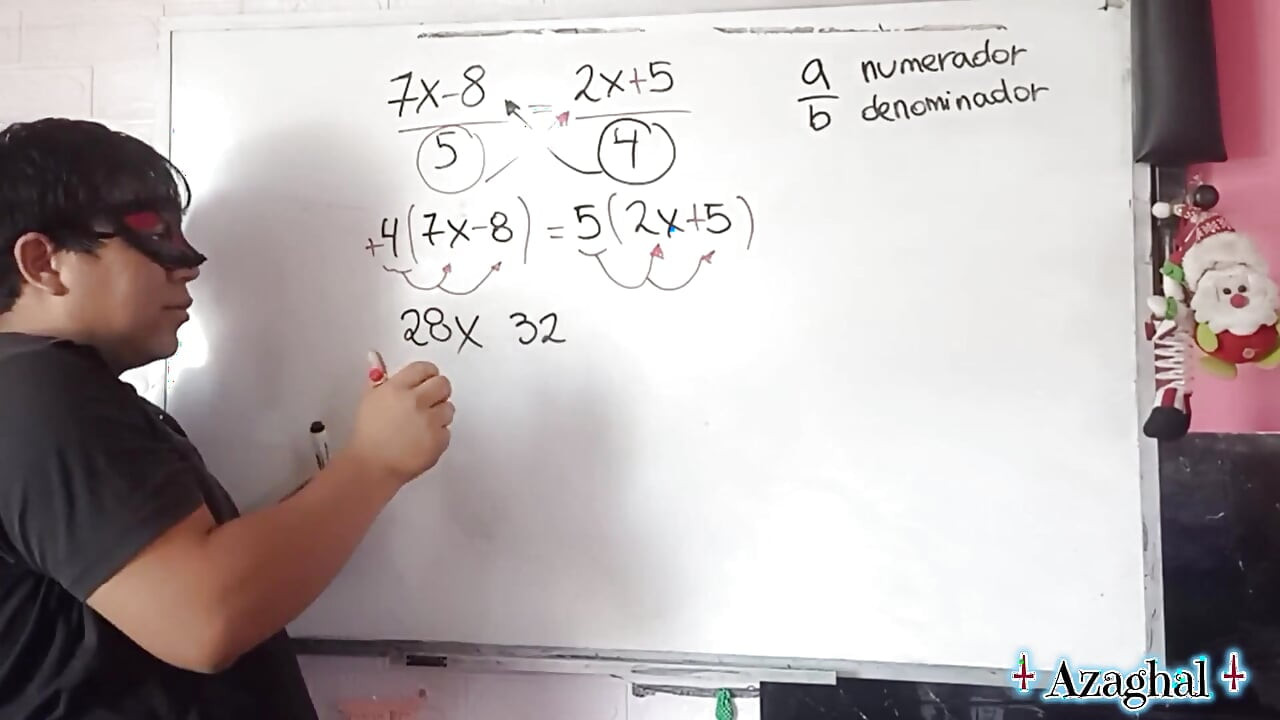 7x-8 = 2x+5
5 4
a numerador
b denominador
+4(7x-8) = 5(2x+5)
28x 32
Azaghal